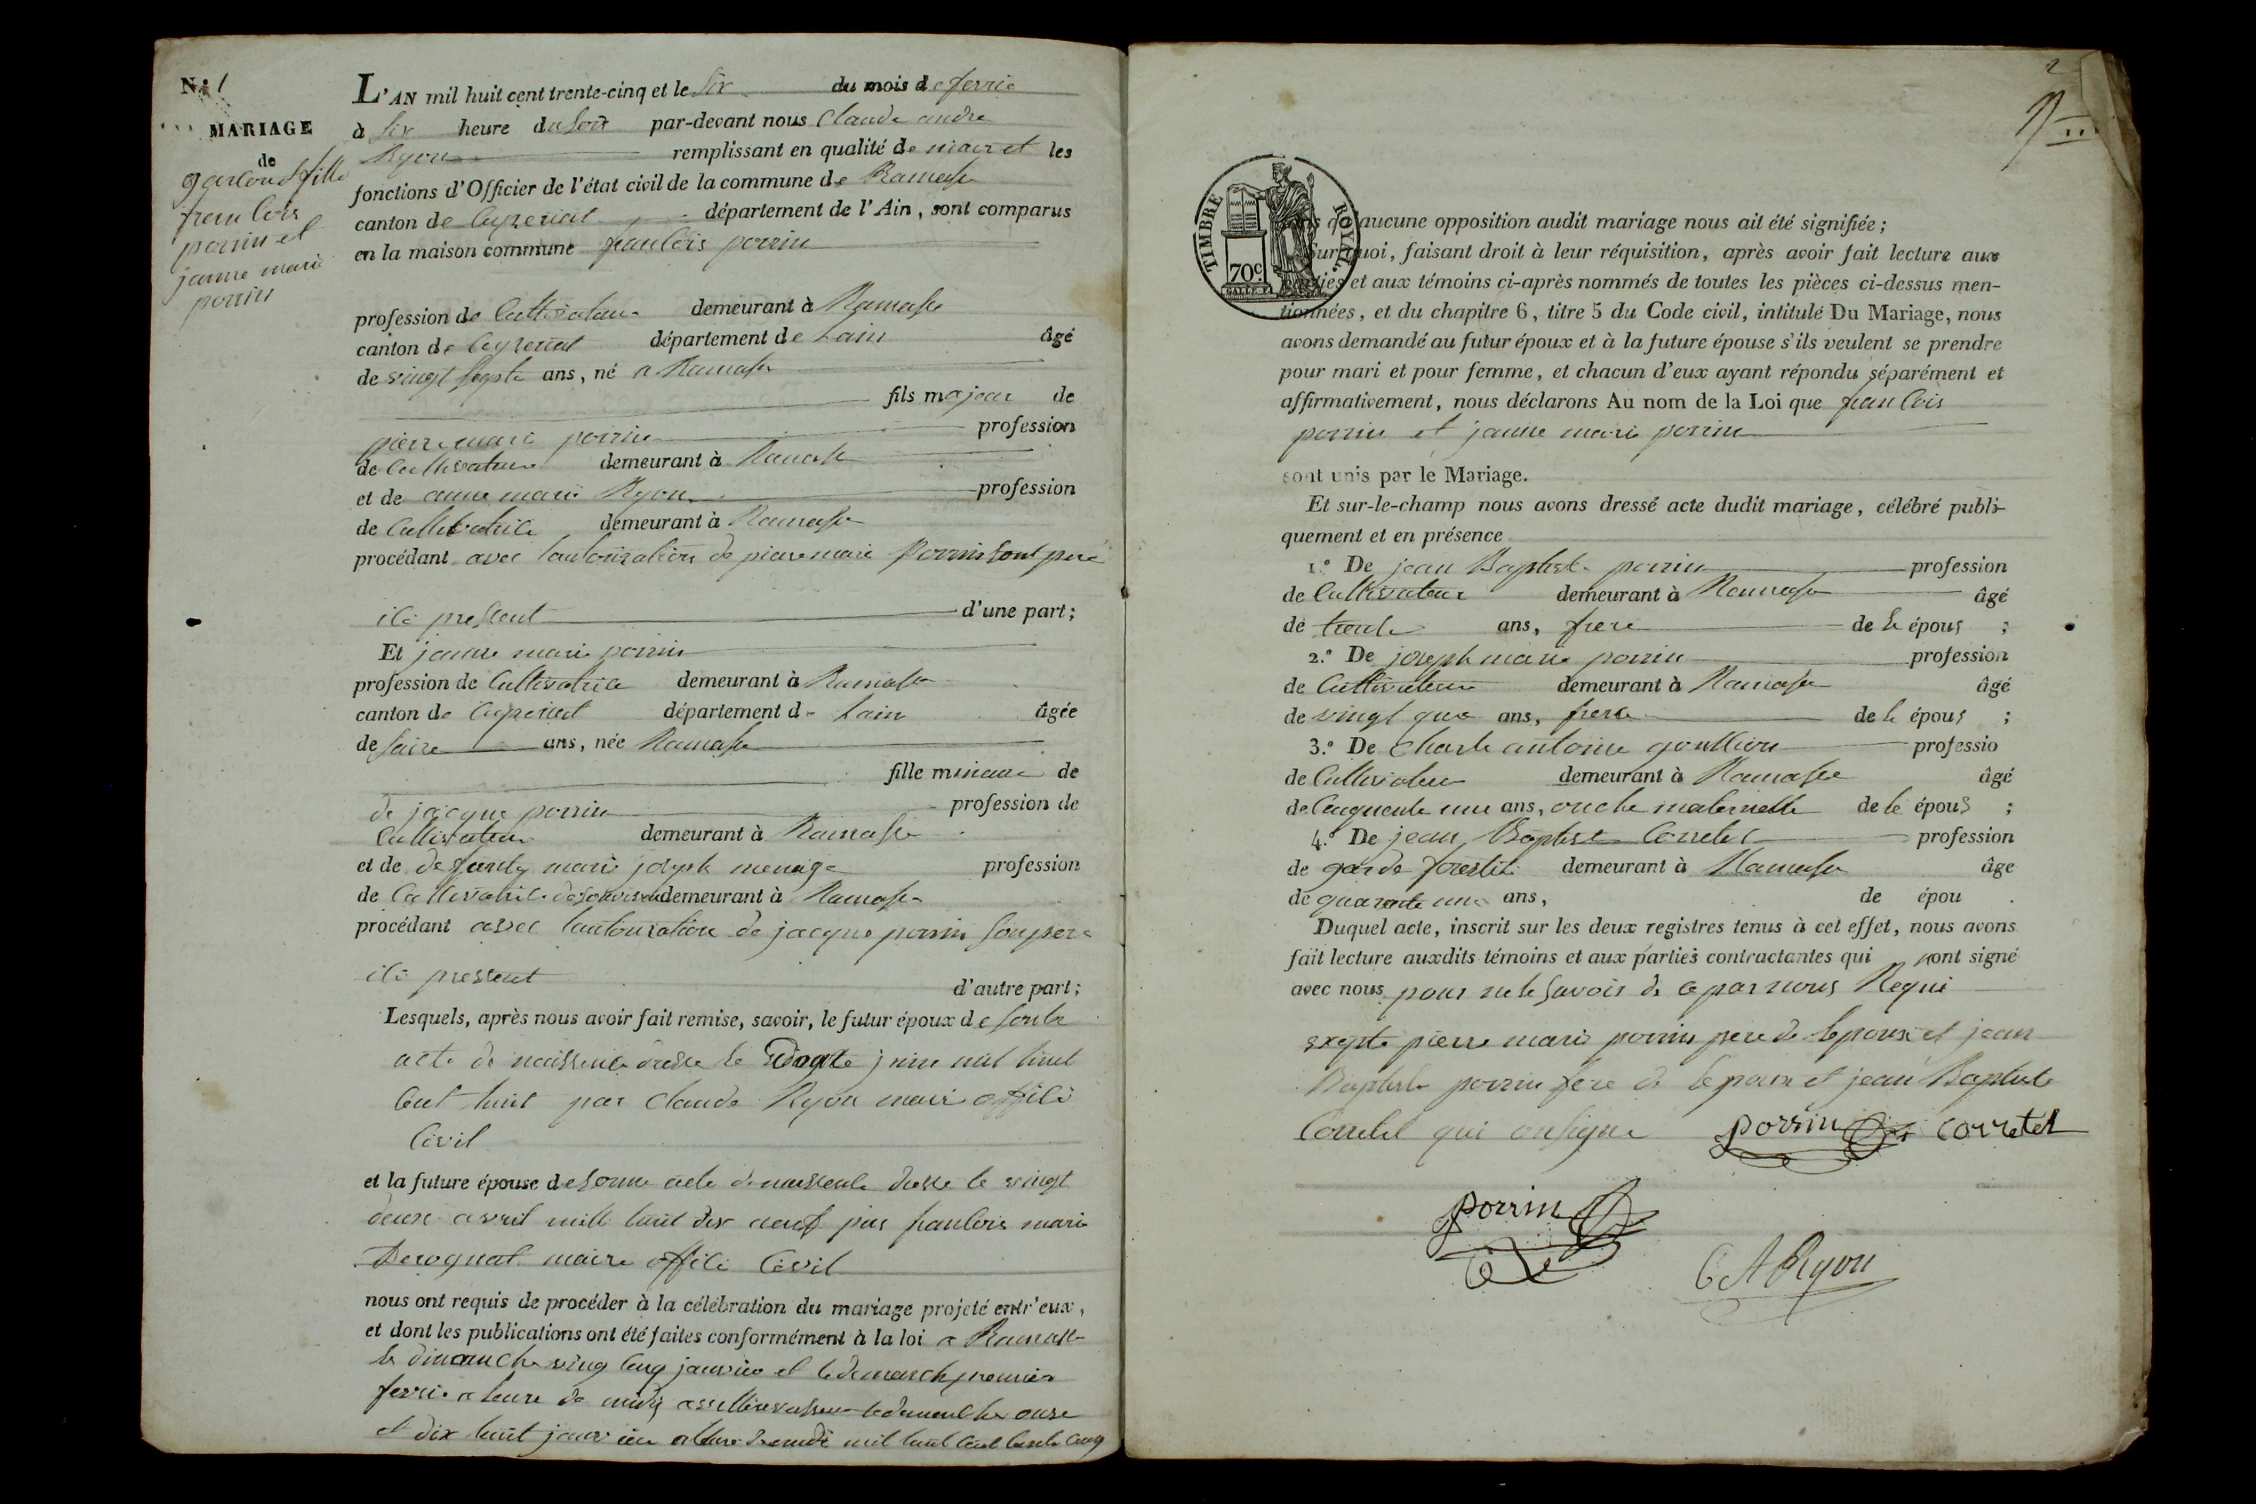 N.º 1
MARIAGE
de
garcon et fille
francois
porrin et
janne marie
porrin
L'AN mil huit cent trente-cinq et le six du mois de ferrie
à six heure du soir par-devant nous Claude andre
Ryon remplissant en qualité de maire et les
fonctions d'Officier de l'état civil de la commune de Ramasse
canton de Ceyzeriat département de l'Ain, sont comparus
en la maison commune francois porrin
profession de Cultivateur demeurant à Ramasse
canton de Ceyzeriat département de Lain âgé
de vingt septe ans, né a Ramasse
fils majeur de
pierre marie porrin profession
de Cultivateur demeurant à Ramasse
et de anne marie Ryon profession
de Cultivatrice demeurant à Ramasse
procédant avec lautorization de pierre marie porrin sont pere
ici pressent d'une part;
Et janne marie porrin
profession de Cultivatrice demeurant à Ramasse
canton de Ceyzeriat département de Lain âgée
de saize ans, née Ramasse
fille mineure de
de jacque porrin profession de
Cultivateur demeurant à Ramasse
et de defunte marie joseph menage profession
de Cultivatrice demeurant à Ramasse
procédant avec lautorization de jacque porrin son pere
ici pressent d'autre part;
Lesquels, après nous avoir fait remise, savoir, le futur époux de sont
acte de naissance dresse le juin mil huit
Cent huit par Claude Ryon maire offici
Civil
et la future épouse de sonne acte de naissence dresse le vingt
deux avril mille huit dix neuf par francois marie
Derognat maire offici Civil
nous ont requis de procéder à la célébration du mariage projeté entr'eux,
et dont les publications ont été faites conformément à la loi a Ramasse
le dimanche ving cinq janvier et le dimanch premier
ferrie a leure de midi a le dimanche onze
et dix huit janvier a leure de midi mil huit Cent trente Cinq
2
TIMBRE ROYAL
70c
sans qu'aucune opposition audit mariage nous ait été signifiée;
Sur quoi, faisant droit à leur réquisition, après avoir fait lecture aux
parties et aux témoins ci-après nommés de toutes les pièces ci-dessus men-
tionnées, et du chapitre 6, titre 5 du Code civil, intitulé Du Mariage, nous
avons demandé au futur époux et à la future épouse s'ils veulent se prendre
pour mari et pour femme, et chacun d'eux ayant répondu séparément et
affirmativement, nous déclarons Au nom de la Loi que francois
porrin et janne marie porrin
sont unis par le Mariage.
Et sur-le-champ nous avons dressé acte dudit mariage, célébré publi-
quement et en présence
1.º De jean Baptiste porrin profession
de Cultivateur demeurant à Ramasse âgé
de trente ans, frere de le épous ;
2.º De joseph marie porrin profession
de Cultivateur demeurant à Ramasse âgé
de vingt ans, frere de le épous ;
3.º De Charle antoine goullion professio
de Cultivateur demeurant à Ramasse âgé
de Cinquente une ans, oncle maternelle de le épous ;
4.º De jean Baptiste Corretel profession
de garde forestie demeurant à Ramasse âge
de quarante une ans, de épou
Duquel acte, inscrit sur les deux registres tenus à cet effet, nous avons
fait lecture auxdits témoins et aux parties contractantes qui nont signé
avec nous pour ne le savoir de ce par nous Requi
exepte pierre marie porrin pere de lepoux et jean
Baptiste porrin frere de lepoux et jean Baptiste
Corretel qui on signe porrin corretel
porrin
C A Ryon